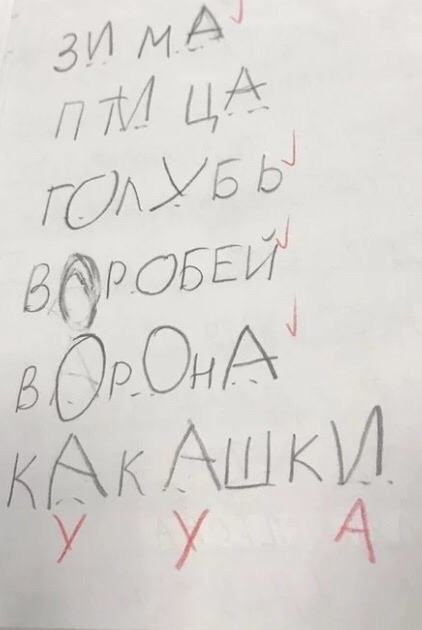 ЗИМА
ПТИЦА
ГОЛУБЬ
ВОРОБЕЙ
ВОРОНА
КАКАШКИ
У У А